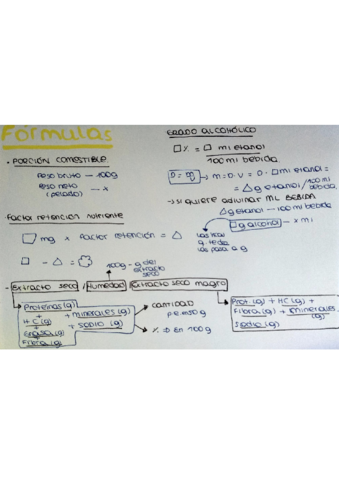 Fórmulas
· PORCIÓN COMESTIBLE
peso bruto — 100g
peso neto — x
(pelado)
Factor retención nutriente
□ mg x factor retención = △
□ - △ =
GRADO ALCOHÓLICO
□% = □ ml etanol
100 ml bebida
→ m = D·V = D · □ ml etanol =
= △ g etanol / 100 ml bebida
→ si quiere adivinar ML BEBIDA
△ g etanol — 100 ml bebida
□ g alcohol — x ml
100g - g del extracto seco
- Extracto seco / Humedad / Extracto seco magro
Proteínas (g)
+
HC (g)
+
Grasa (g)
+
Fibra (g)
+ minerales (g)
+ sodio (g)
CANTIDAD
% ⇒ En 100g
Prot. (g) + HC (g) +
Fibra (g) + minerales (g)
sodio (g)